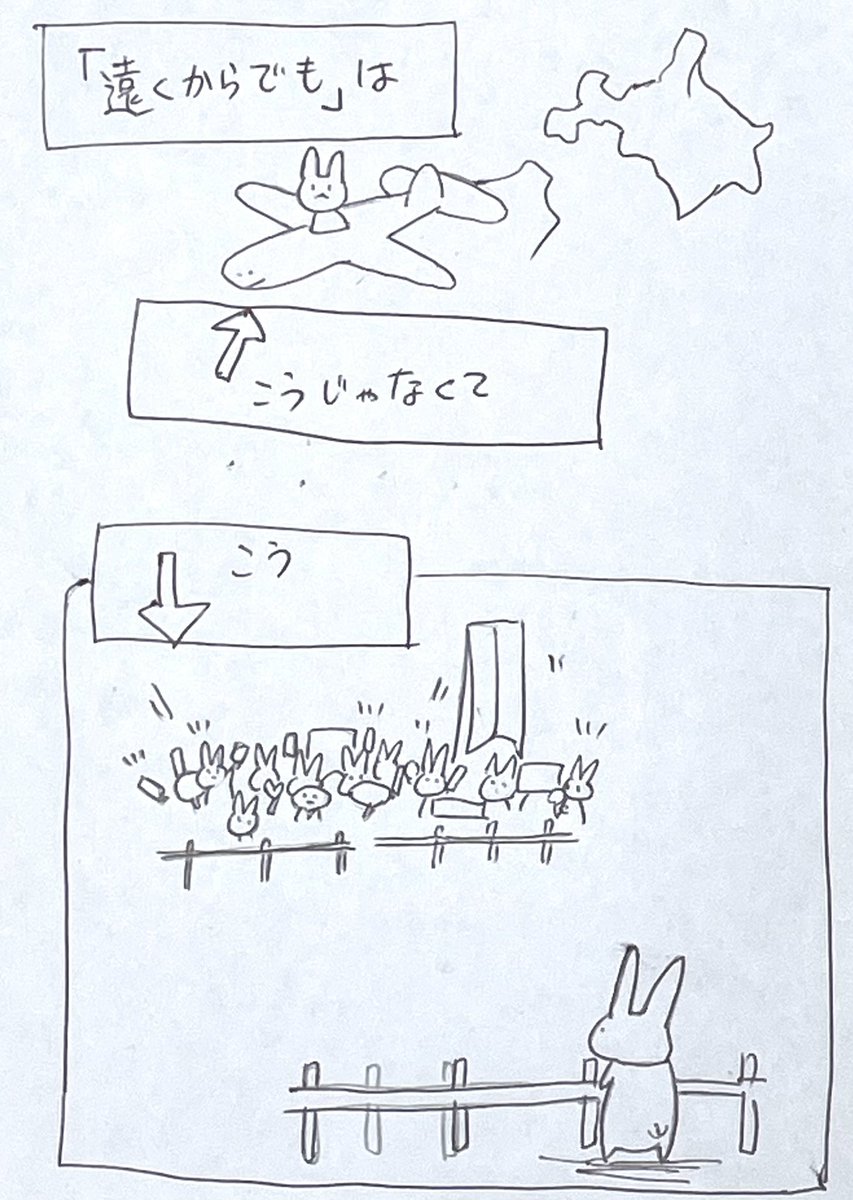 「遠くからでも」は
こうじゃなくて
こう